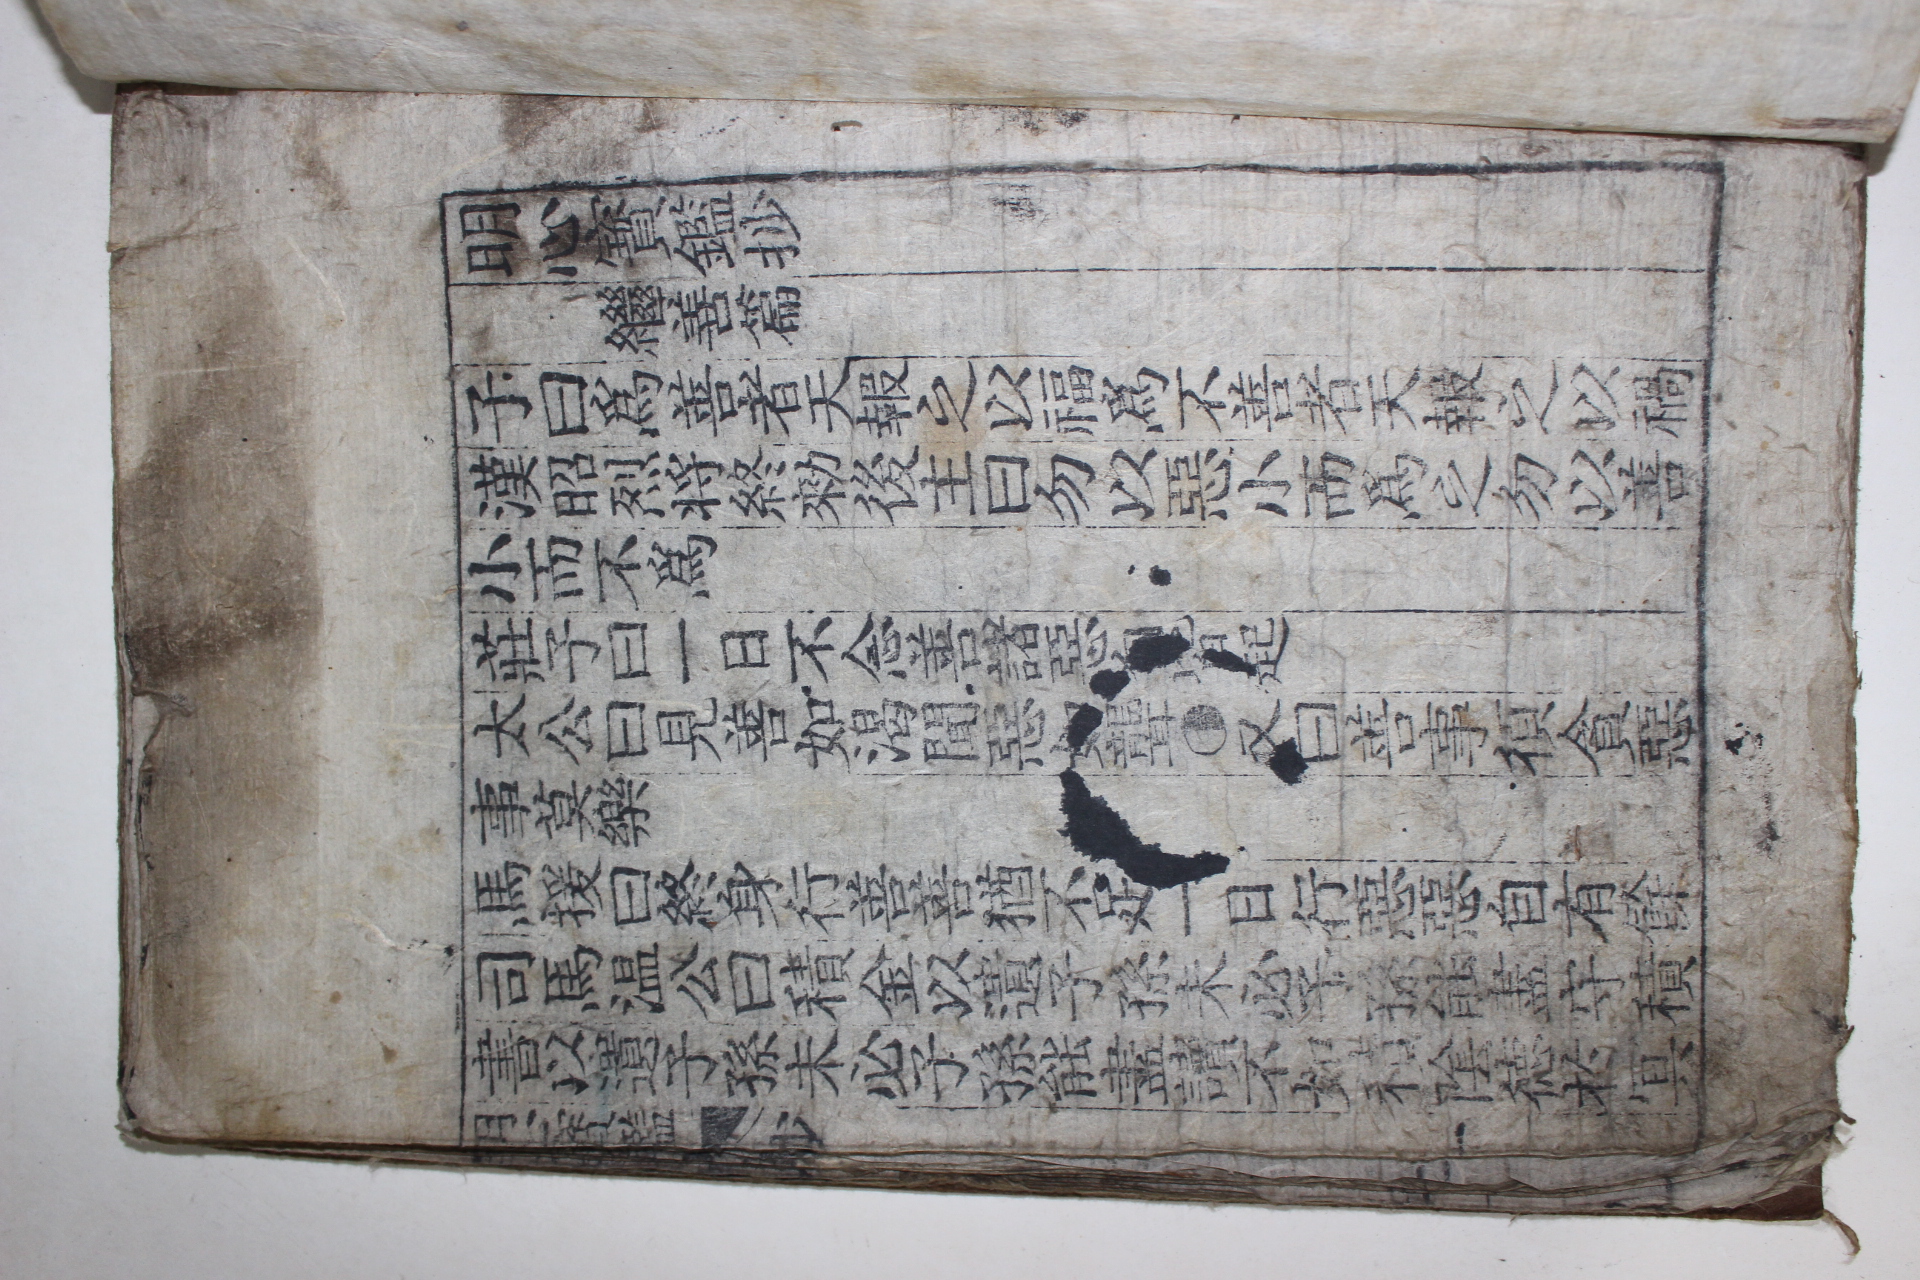 明心寶鑑抄
繼善篇
子曰爲善者天報之以福爲不善者天報之以禍
漢昭烈將終勑後主曰勿以惡小而爲之勿以善
小而不爲
莊子曰一日不念善諸惡自起
太公曰見善如渴聞惡如聾●又曰善事須貪惡
事莫樂
馬援曰終身行善善猶不足一日行惡惡自有餘
司馬温公曰積金以遺子孫未必子孫能盡守積
書以遺子孫未必子孫能盡讀不如積陰德於冥
明心寶鑑抄